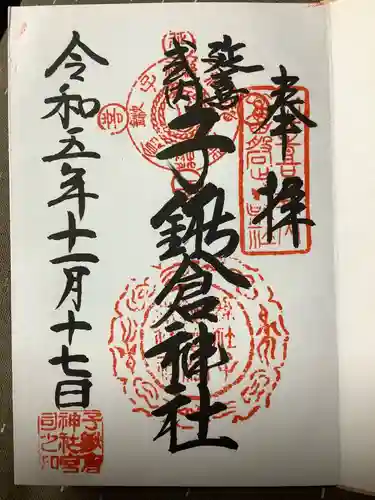 奉拝
延喜
式内
子鍬倉神社
令和五年十一月十七日
子鍬倉
神社宮
司之印